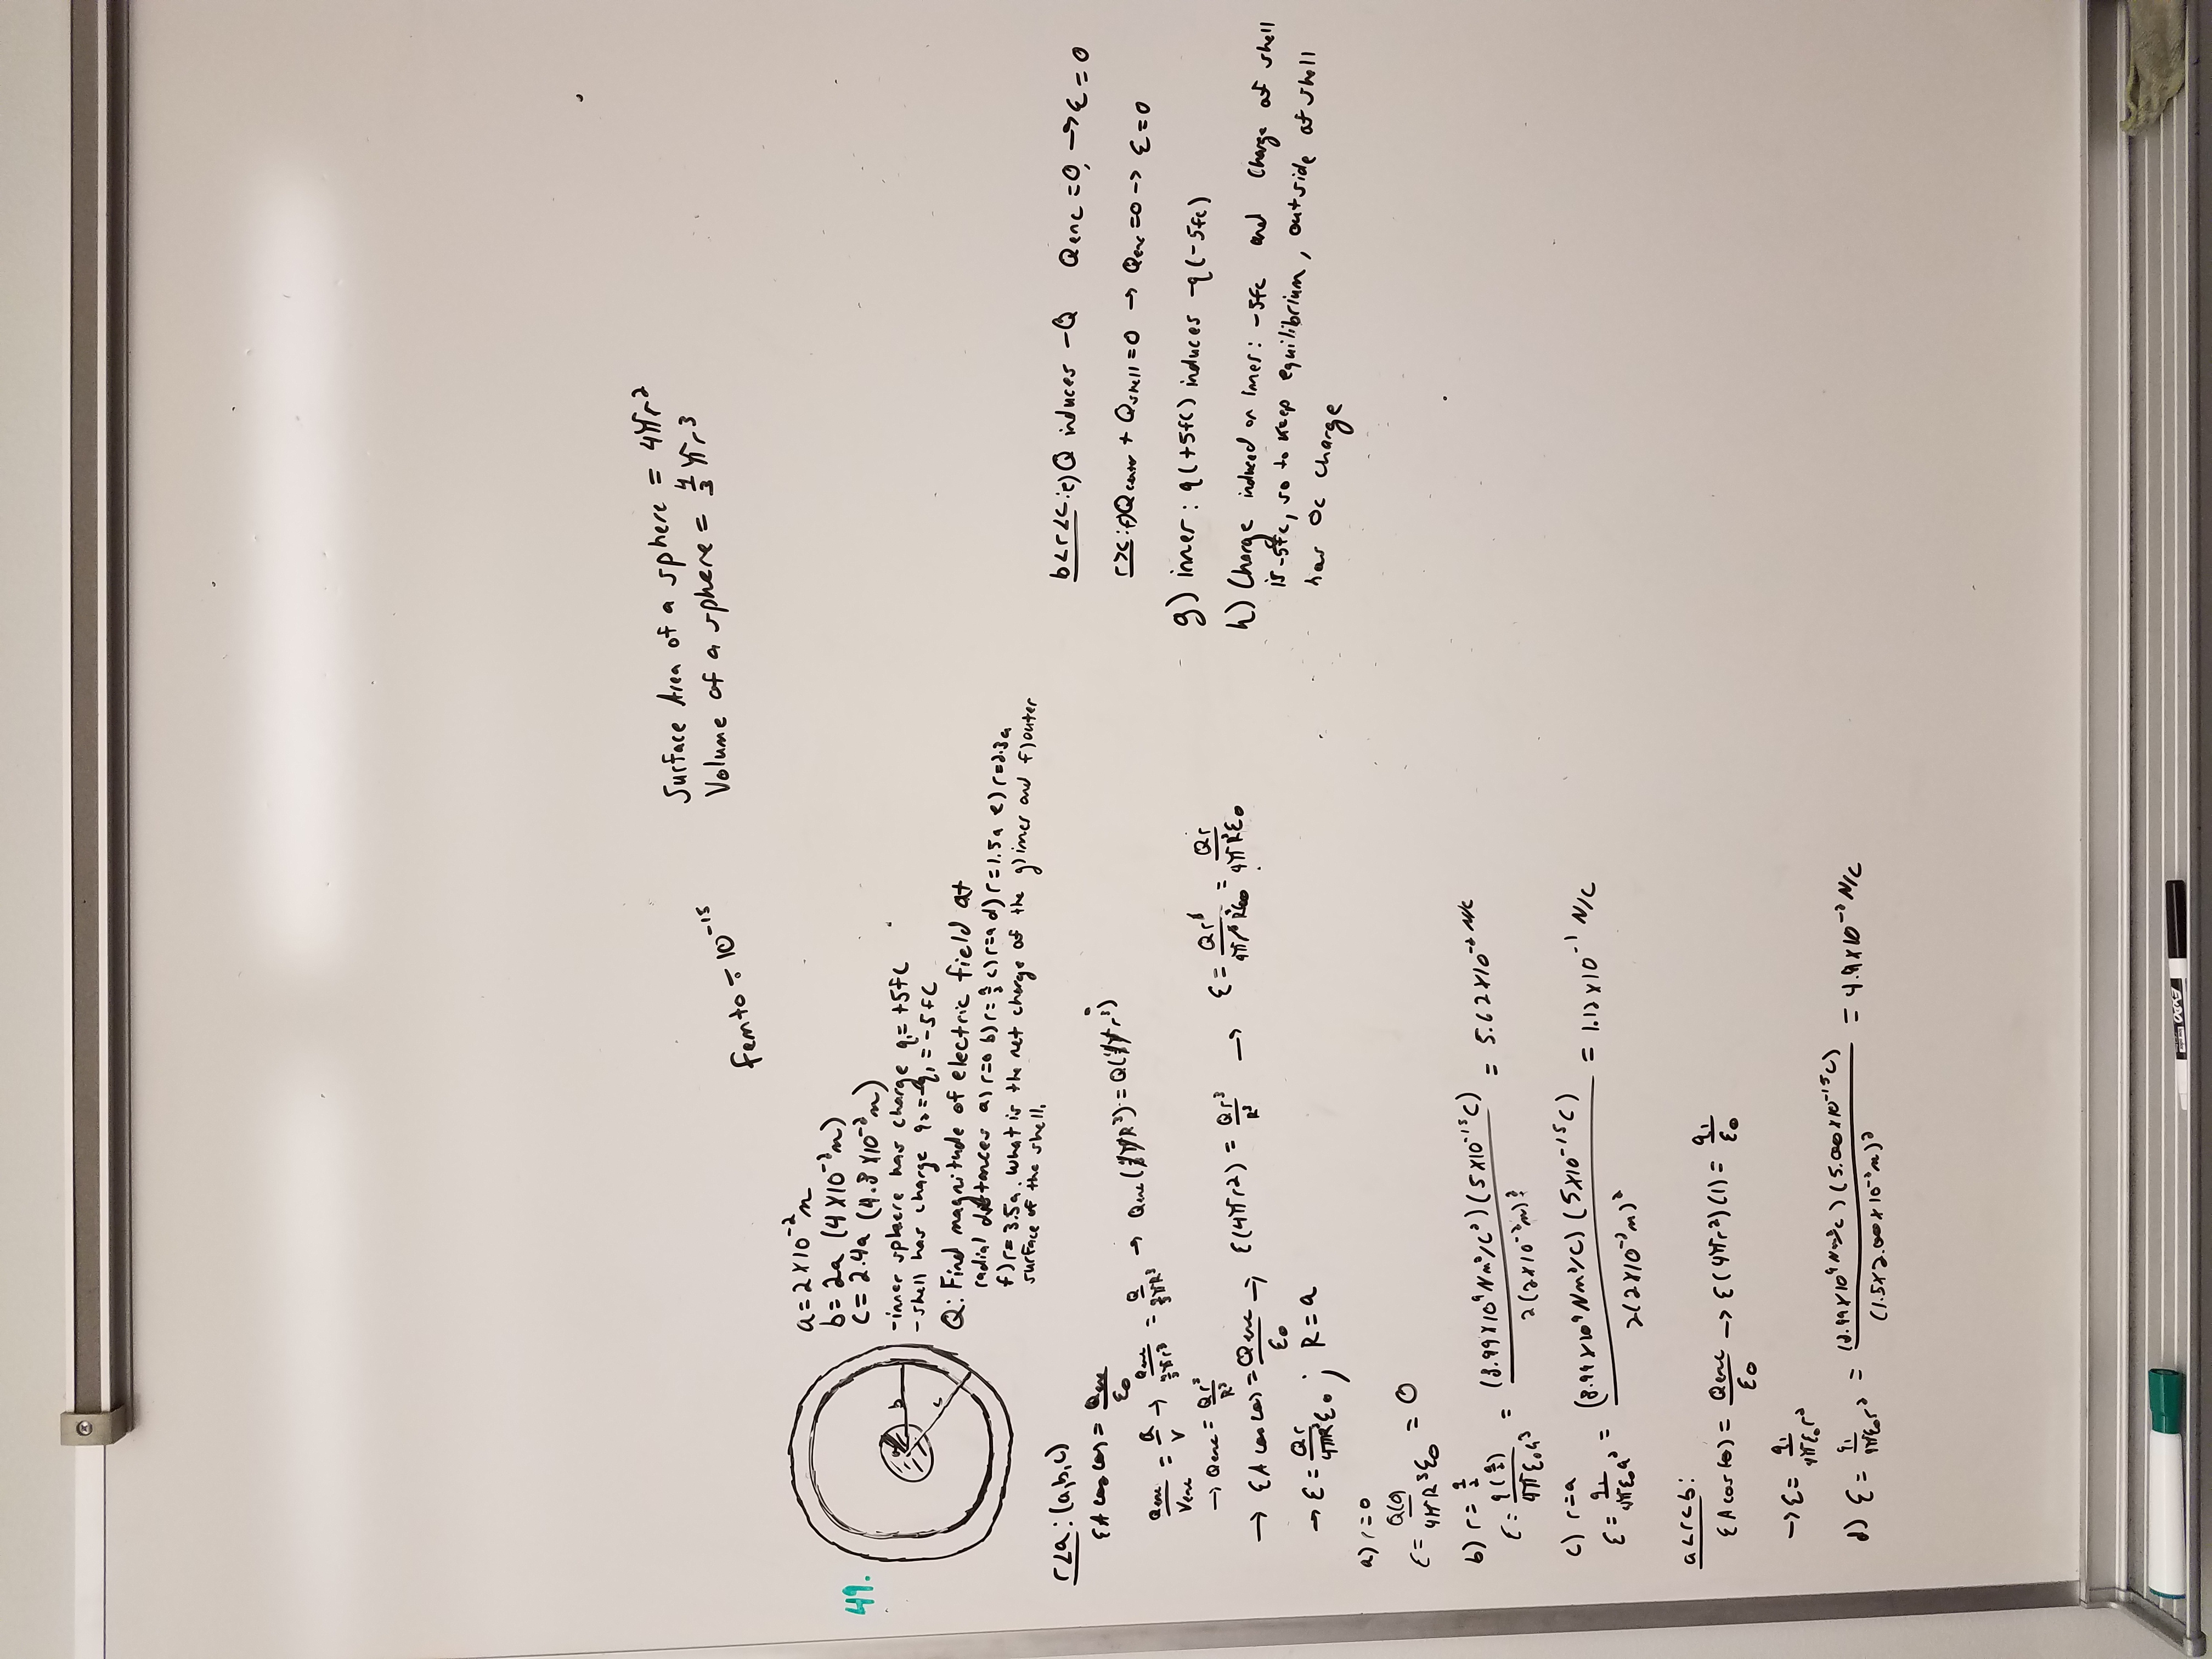 Surface Area of a sphere = 4πr²
Volume of a sphere = 4/3 πr³
Femto ÷ 10⁻¹⁵
49.
a b c
a = 2×10⁻² m
b = 2a (4×10⁻² m)
c = 2.4a (4.8×10⁻² m)
-inner sphere has charge q₁ = +5fC
-shell has charge q₂ = -q₁ = -5fC
Q: Find magnitude of electric field at
radial distances a) r=0 b) r=a/2 c) r=a d) r=1.5a e) r=2.3a
f) r=3.5a. What is the net charge of the g) inner and f) outer
surface of the shell.
r<a: (a,b,c)
EA cos(0) = Qenc/ε₀
Qenc/Venc = Q/V → Qenc/(4/3 πr³) = Q/(4/3 πR³) → Qenc(4/3 πR³) = Q(4/3 πr³)
→ Qenc = Qr³/R³
→ EA cos(0) = Qenc/ε₀ → E(4πr²) = Qr³/R³ → E = Qr³/4πr²R³ε₀ = Qr/4πR³ε₀
→ E = Qr/4πR³ε₀ ; R = a
a) r=0
E = Q(0)/4πR³ε₀ = 0
b) r = a/2
E = q(a/2)/4πε₀a³ = (8.99×10⁹ Nm²/C²)(5×10⁻¹⁵C)/2(2×10⁻²m)² = 5.62×10⁻² N/C
c) r=a
E = q₁/4πε₀a² = (8.99×10⁹ Nm²/C)(5×10⁻¹⁵C)/2(2×10⁻²m)² = 1.12×10⁻¹ N/C
a<r<b:
EA cos(0) = Qenc/ε₀ → E(4πr²)(1) = q₁/ε₀
→ E = q₁/4πε₀r²
d) E = q₁/4πε₀r² = (8.99×10⁹ Nm²/C)(5.00×10⁻¹⁵C)/(1.5×2.00×10⁻²m)² = 4.9×10⁻² N/C
b<r<c: e) Q induces -Q Qenc = 0, → E = 0
r>c: f) Qcenter + Qshell = 0 → Qenc = 0 → E = 0
g) inner: q(+5fC) induces -q(-5fC)
h) Charge induced on inner: -5fC and charge of shell
is -5fC, so to keep equilibrium, outside of shell
has 0C charge
EXPO